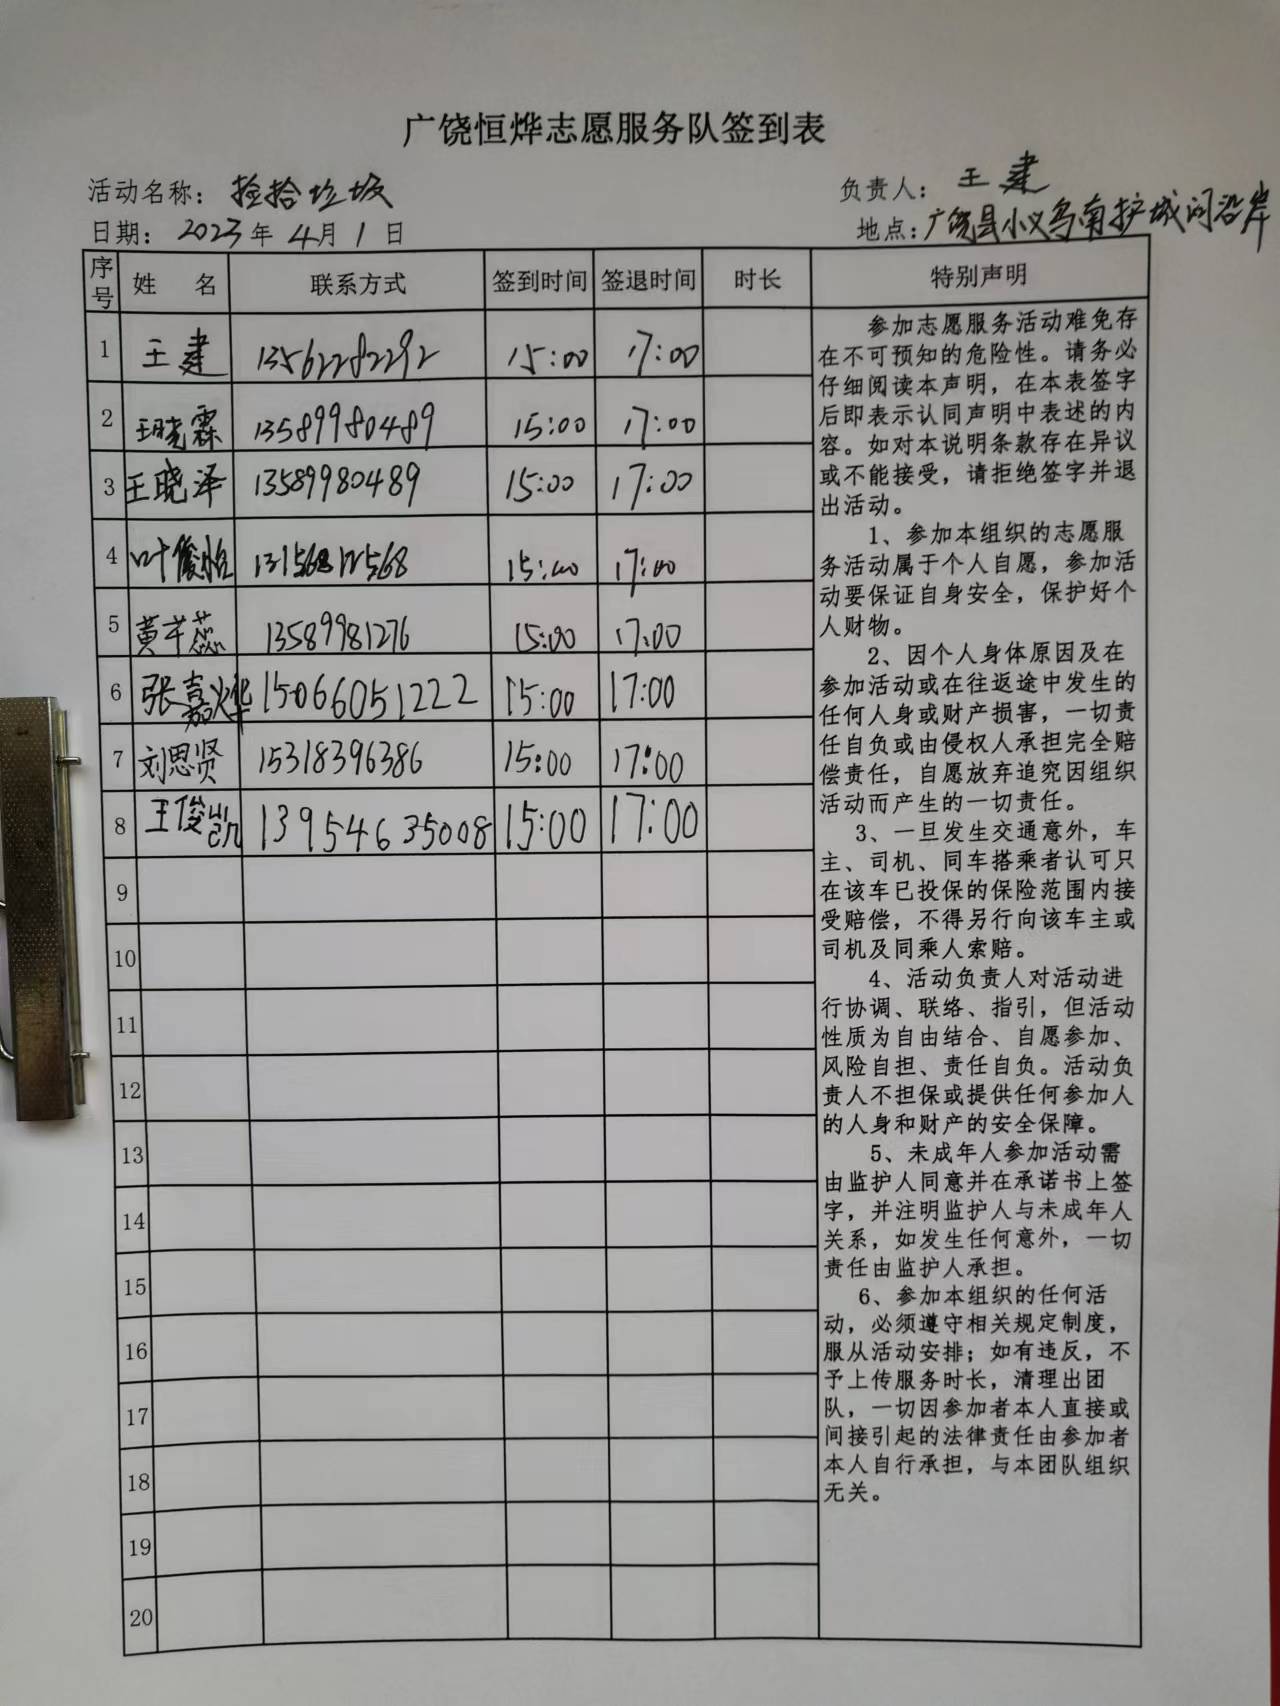 广饶恒烨志愿服务队签到表
活动名称：捡拾垃圾 负责人：王建
日期：2023年4月1日 地点：广饶县小义乌南护城河沿岸
序号 姓名 联系方式 签到时间 签退时间 时长 特别声明
1 王建 13562282292 15:00 17:00
2 王晓霖 13589980489 15:00 17:00
3 王晓泽 13589980489 15:00 17:00
4 叶俊怡 15:00 17:00
5 黄芊蕊 13589981276 15:00 17:00
6 张嘉烨 15066051222 15:00 17:00
7 刘思贤 15318396386 15:00 17:00
8 王俊凯 13954635008 15:00 17:00
9
10
11
12
13
14
15
16
17
18
19
20
参加志愿服务活动难免存
在不可预知的危险性。请务必
仔细阅读本声明，在本表签字
后即表示认同声明中表述的内
容。如对本说明条款存在异议
或不能接受，请拒绝签字并退
出活动。
1、参加本组织的志愿服
务活动属于个人自愿，参加活
动要保证自身安全，保护好个
人财物。
2、因个人身体原因及在
参加活动或在往返途中发生的
任何人身或财产损害，一切责
任自负或由侵权人承担完全赔
偿责任，自愿放弃追究因组织
活动而产生的一切责任。
3、一旦发生交通意外，车
主、司机、同车搭乘者认可只
在该车已投保的保险范围内接
受赔偿，不得另行向该车主或
司机及同乘人索赔。
4、活动负责人对活动进
行协调、联络、指引，但活动
性质为自由结合、自愿参加、
风险自担、责任自负。活动负
责人不担保或提供任何参加人
的人身和财产的安全保障。
5、未成年人参加活动需
由监护人同意并在承诺书上签
字，并注明监护人与未成年人
关系，如发生任何意外，一切
责任由监护人承担。
6、参加本组织的任何活
动，必须遵守相关规定制度，
服从活动安排；如有违反，不
予上传服务时长，清理出团
队，一切因参加者本人直接或
间接引起的法律责任由参加者
本人自行承担，与本团队组织
无关。